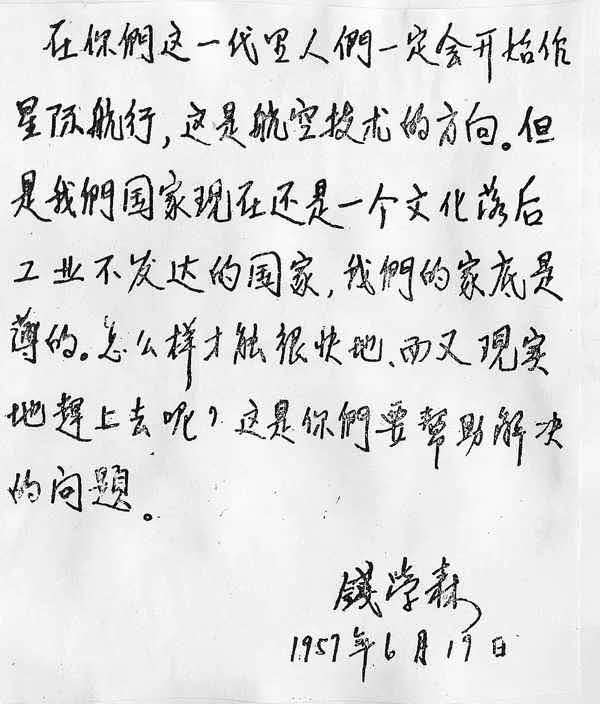 在你們这一代里人們一定会开始作
星际航行，这是航空技术的方向。但
是我們国家現在还是一个文化落后
工业不发达的国家，我們的家底是
薄的。怎么样才能很快地、而又現实
地趕上去呢？这是你們要幫助解决
的问題。
錢学森
1957年6月19日